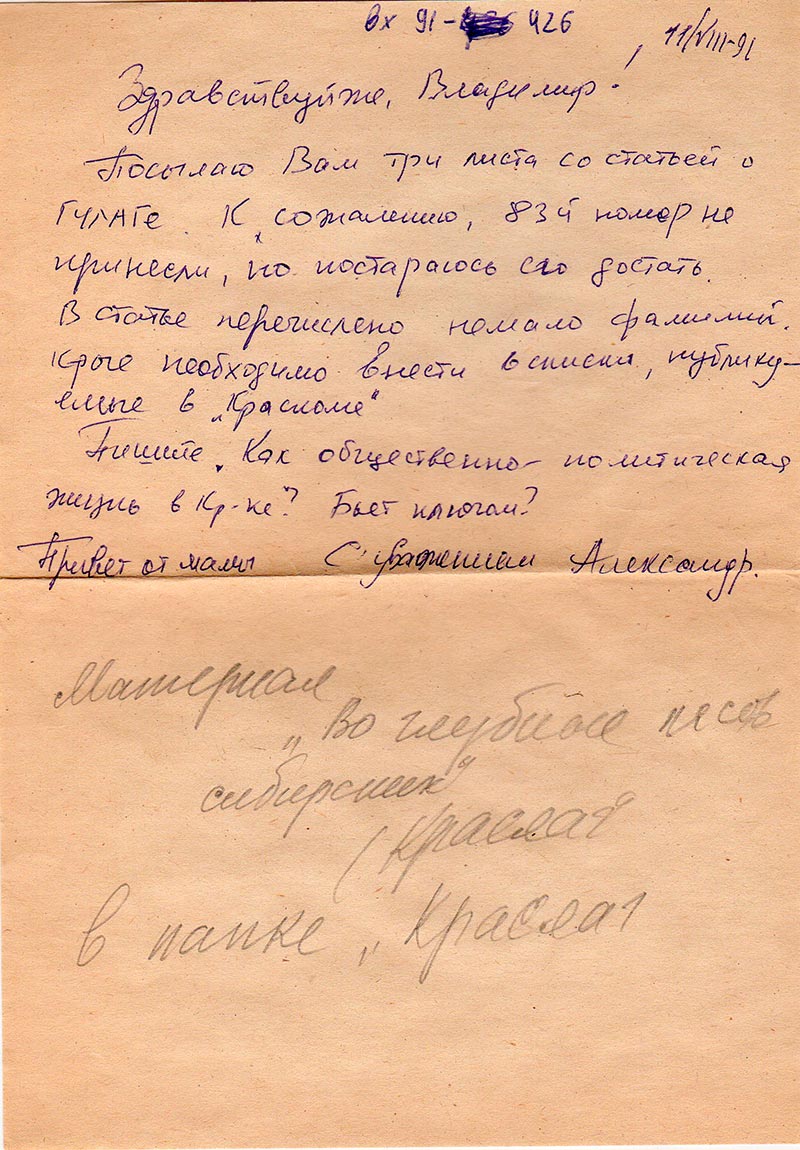 вх 91- 426
11/VIII-91
Здравствуйте, Владимир!
Посылаю Вам три листа со статьей о
ГУЛАГе. К сожалению, 83й номер не
принесли, но постараюсь его достать.
В статье перечислено немало фамилий.
необходимо внести в списки, публику-
емые в „Красноме"
Пишите. Как общественно-политическая
жизнь в Кр-ке? Бьет ключом?
Привет от мамы С уважением Александр.
Материал
„Во глубине лесов
сибирских"
(Краслаг
в папке „Краслаг